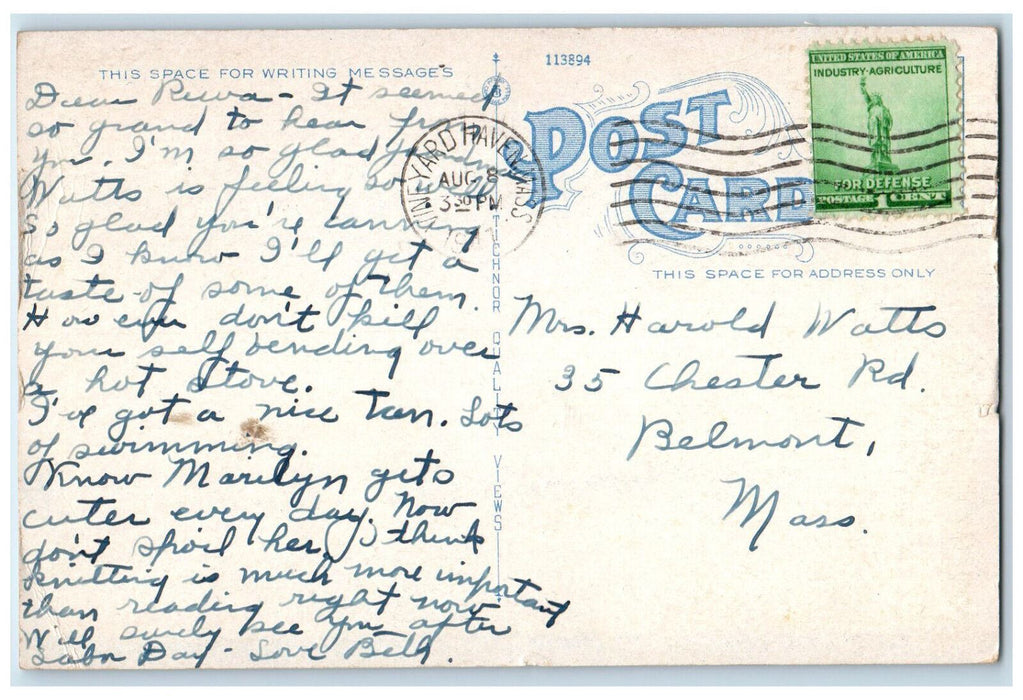 THIS SPACE FOR WRITING MESSAGES
Dear Reva - It seemed
so grand to hear from
you. I'm so glad
Watts is feeling so
So glad you're canning
as I know I'll get a
taste of some of them.
However don't kill
your self bending over
a hot stove.
I've got a nice tan. Lots
of swimming.
Know Marilyn gets
cuter every day. Now
don't spoil her. I think
knitting is much more important
than reading right now
Will surely see you after
Labor Day - Love Beth.
TICHNOR QUALITY VIEWS
113894
POST
CARD
VINEYARD HAVEN MASS
AUG 8
3 30 PM
UNITED STATES OF AMERICA
INDUSTRY-AGRICULTURE
FOR DEFENSE
POSTAGE 1 CENT
THIS SPACE FOR ADDRESS ONLY
Mrs. Harold Watts
35 Chester Rd.
Belmont,
Mass.